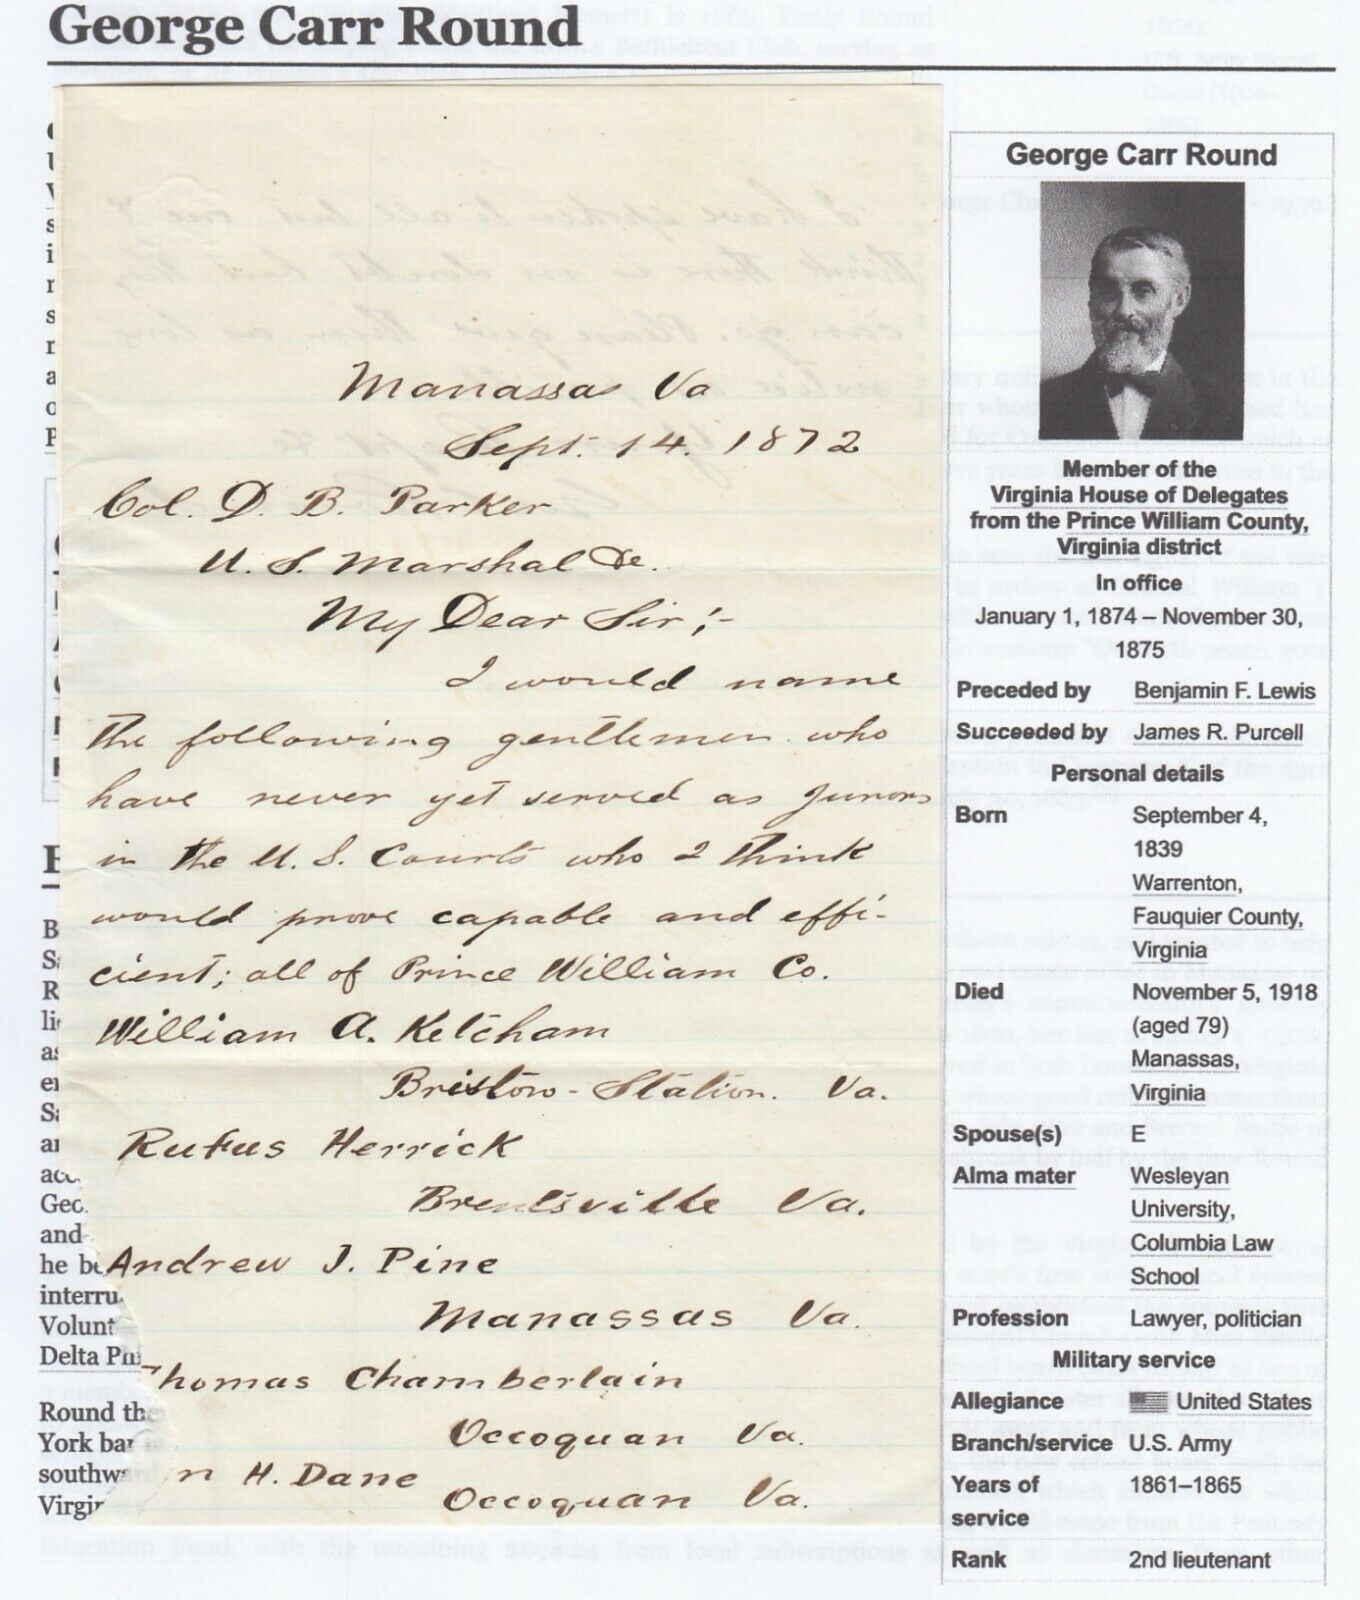 George Carr Round
Manassas Va
Sept. 14. 1872
Col. D. B. Parker
U. S. Marshal &c.
My Dear Sir;-
I would name
the following gentlemen who
have never yet served as Jurors
in the U. S. Courts who I think
would prove capable and effi-
cient; all of Prince William Co.
William A. Ketcham
Bristow-Station. Va.
Rufus Herrick
Brentsville Va.
Andrew J. Pine
Manassas Va.
Thomas Chamberlain
Occoquan Va.
n H. Dane
Occoquan Va.
Geo
and
he be
interru
Volunt
Delta Phi
Round the
York bar
southward
Virgin
George Carr Round
Member of the
Virginia House of Delegates
from the Prince William County,
Virginia district
In office
January 1, 1874 – November 30,
1875
Preceded by Benjamin F. Lewis
Succeeded by James R. Purcell
Personal details
Born September 4,
1839
Warrenton,
Fauquier County,
Virginia
Died November 5, 1918
(aged 79)
Manassas,
Virginia
Spouse(s) E
Alma mater Wesleyan
University,
Columbia Law
School
Profession Lawyer, politician
Military service
Allegiance United States
Branch/service U.S. Army
Years of 1861–1865
service
Rank 2nd lieutenant